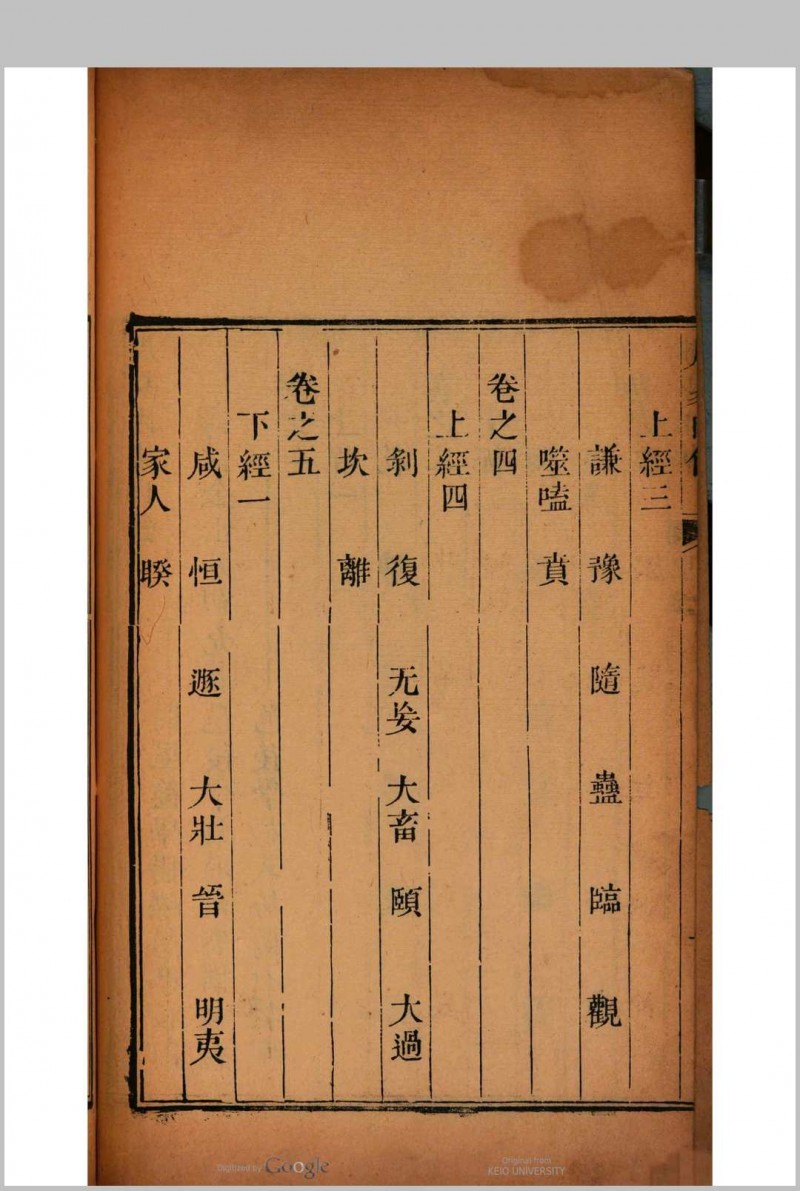 上經三
謙 豫 隨 蠱 臨 觀
噬嗑 賁
卷之四
上經四
剝 復 无妄 大畜 頤 大過
坎 離
卷之五
下經一
咸 恒 遯 大壯 晉 明夷
家人 睽
Digitized by Google
Original from
KEIO UNIVERSITY